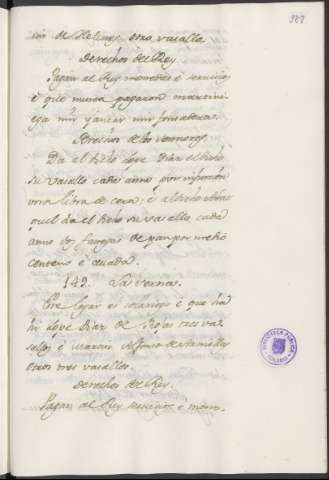 389
otro vasallo
Derechos del Rey.
Pagan al Rey monedas é servicios
é que nunca pagaron martini-
ega nin yantar nin fonsadera.
Derechos de los Señores.
Da al dicho Lope Diaz el dicho
su vasallo cada anno por infurcion
una libra de cera; é al dicho
quel da el dicho su vasallo cada
anno fanegas de pan por medio
centeno é cevada.
149. La Serna.
Este logar es solariego é que ha
hi Lope Diaz de Rojas tres va-
sallos é Martin Alfonso de
otros tres vasallos.
Derechos del Rey.
Pagan al Rey servicios é mone-
BIBLIOTECA PUBLICA